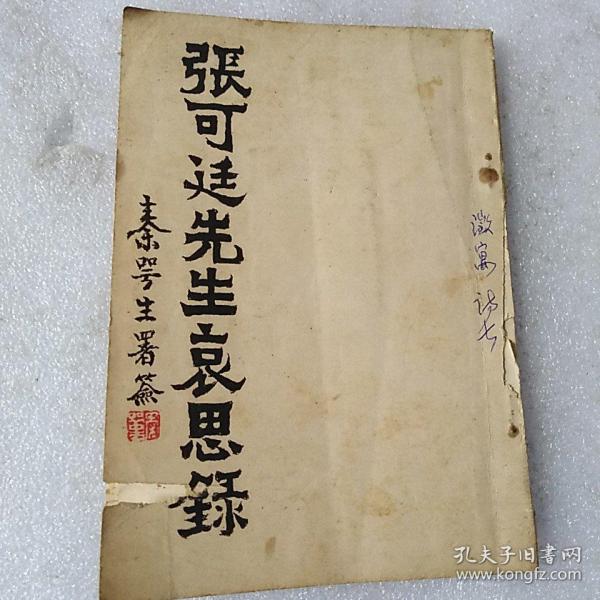 張可廷先生哀思錄
秦咢生署簽
孔夫子旧书网
www.kongfz.com